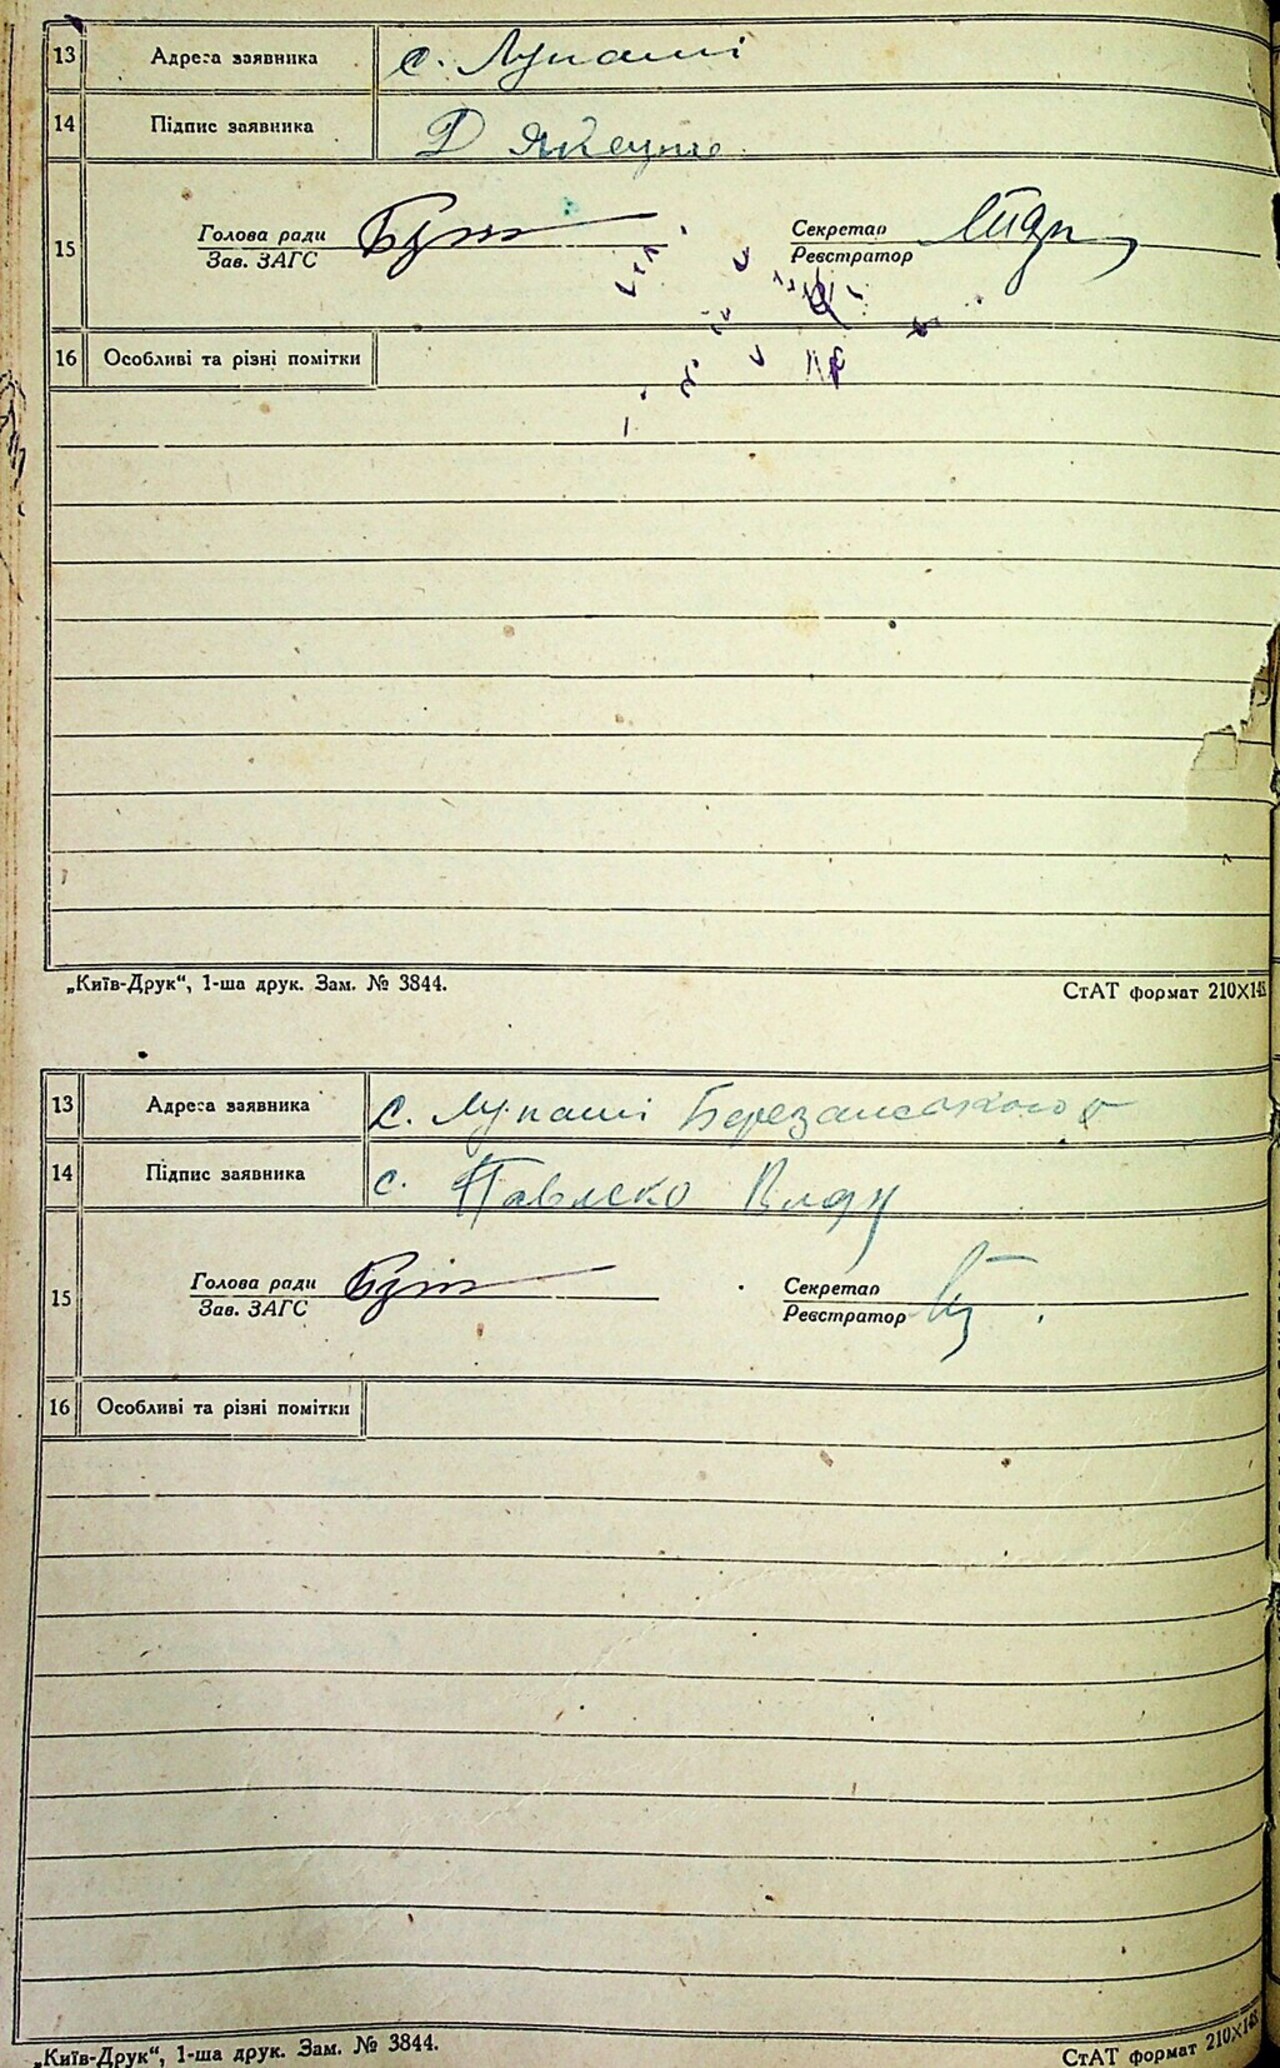 13 Адреса заявника с. Лупаші
14 Підпис заявника Д
15 Голова ради Секретар
Зав. ЗАГС Реєстратор
16 Особливі та різні помітки
„Київ-Друк“, 1-ша друк. Зам. № 3844. СтАТ формат 210X148
13 Адреса заявника с. Лупаші Березанського р
14 Підпис заявника с. Павлеко
15 Голова ради Секретар
Зав. ЗАГС Реєстратор
16 Особливі та різні помітки
„Київ-Друк“, 1-ша друк. Зам. № 3844. СтАТ формат 210X148